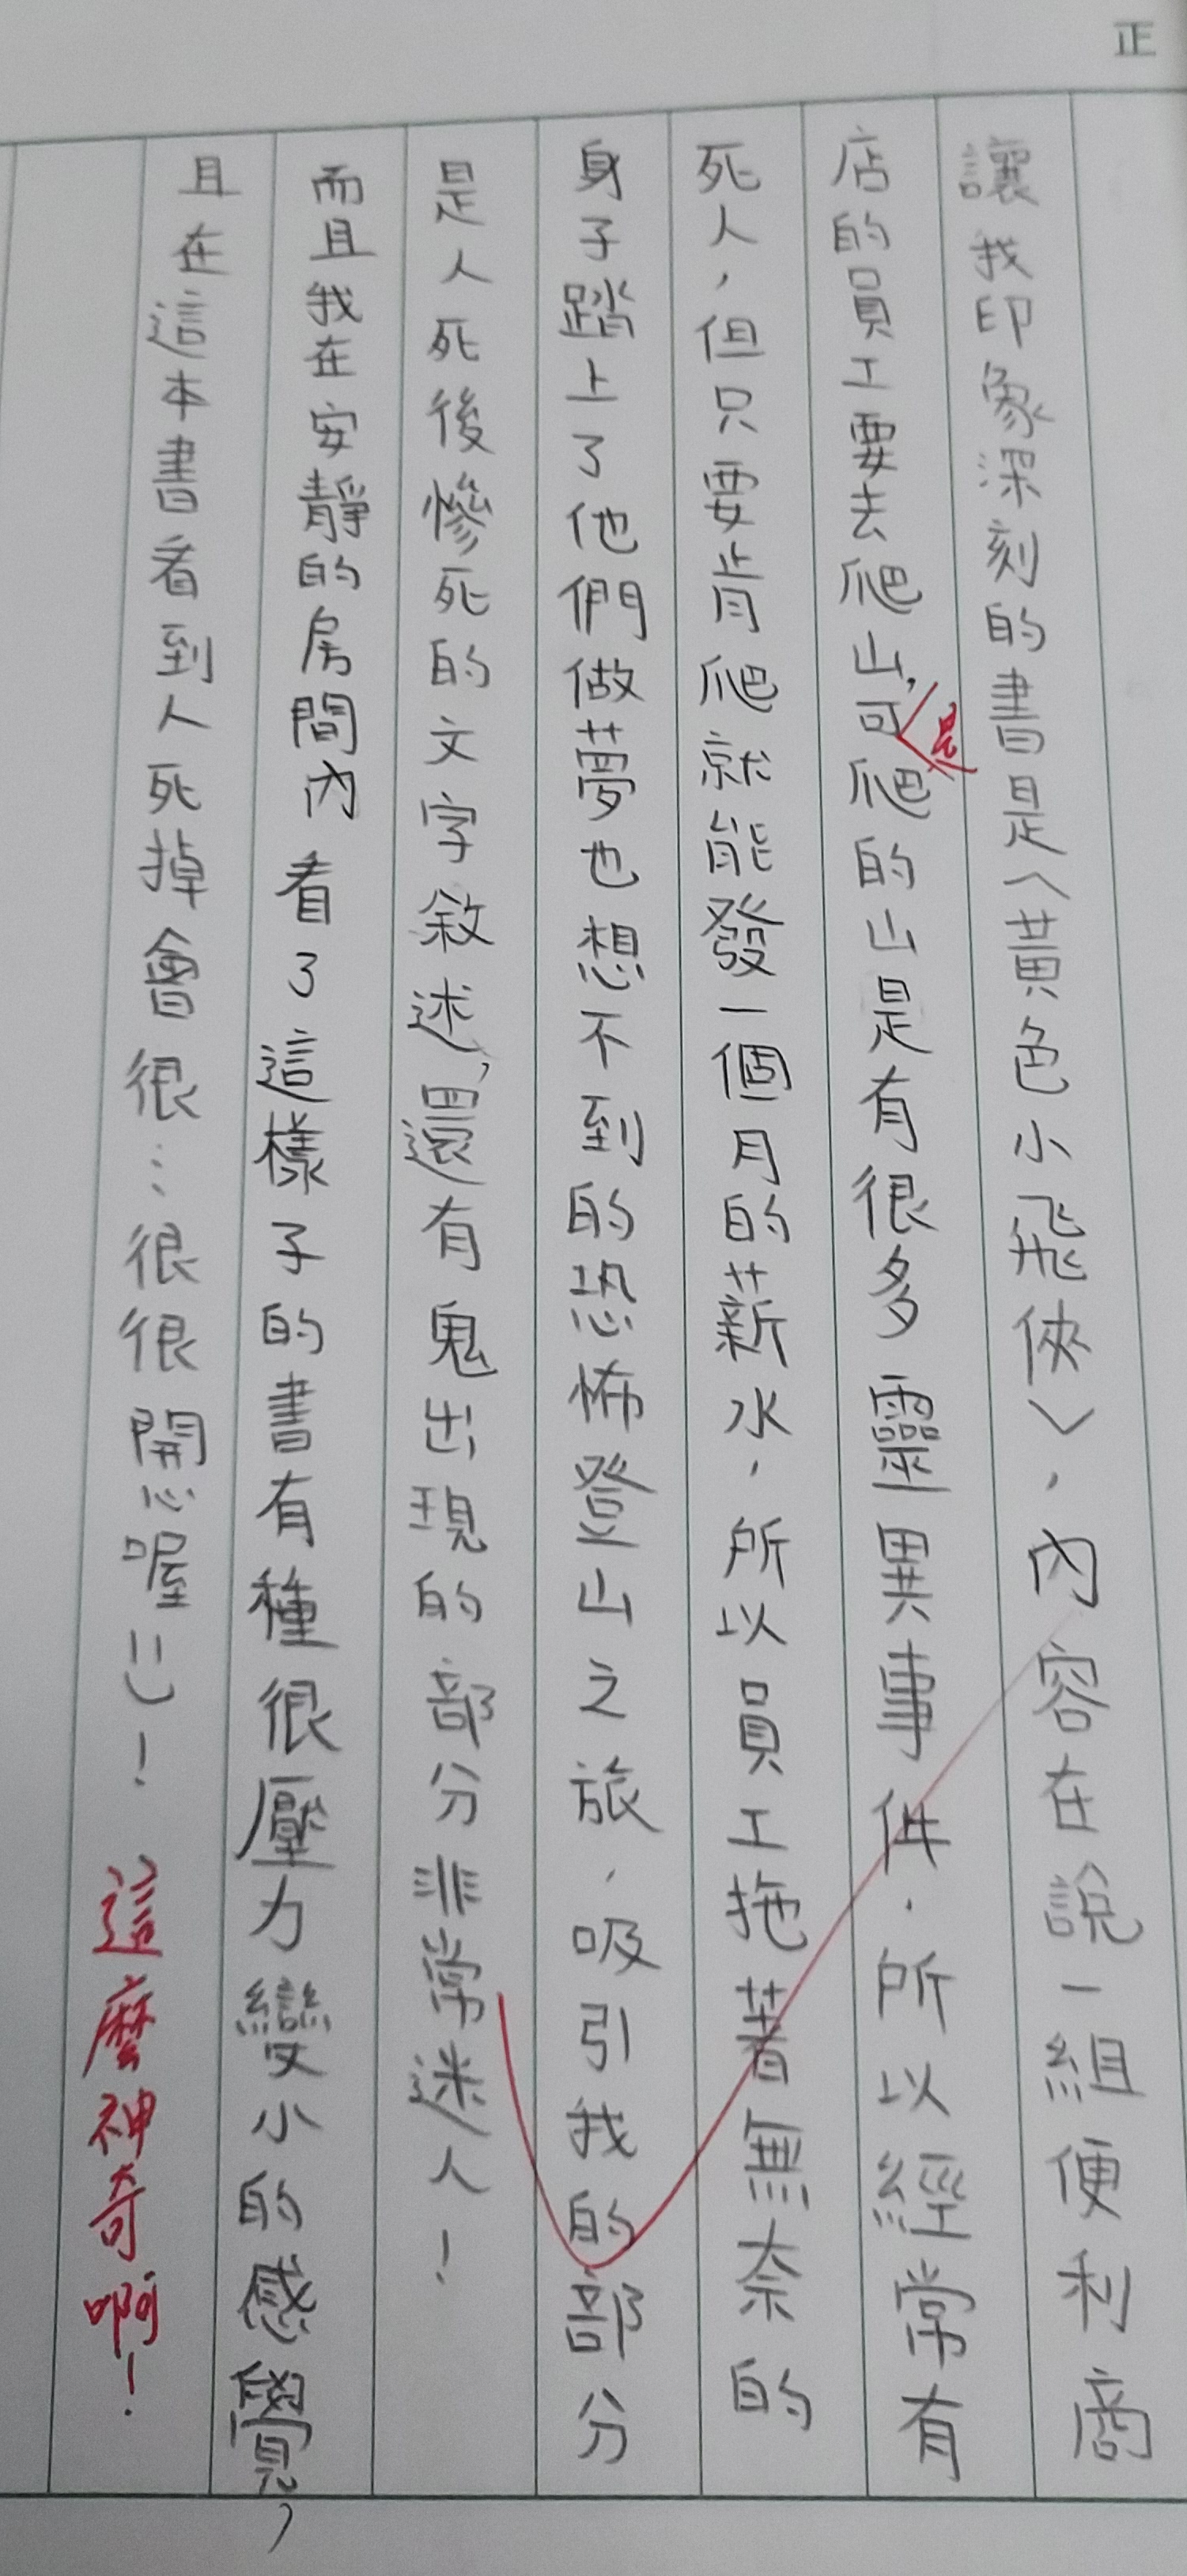 正
讓我印象深刻的書是〈黃色小飛俠〉，內容在說一組便利商
店的員工要去爬山，可是爬的山是有很多靈異事件，所以經常有
死人，但只要肯爬就能發一個月的薪水，所以員工拖著無奈的
身子踏上了他們做夢也想不到的恐怖登山之旅，吸引我的部分
是人死後慘死的文字敘述，還有鬼出現的部分非常迷人！
而且我在安靜的房間內看了這樣子的書有種很壓力變小的感覺，
且在這本書看到人死掉會很…很很開心喔!!:)！
這麼神奇啊！